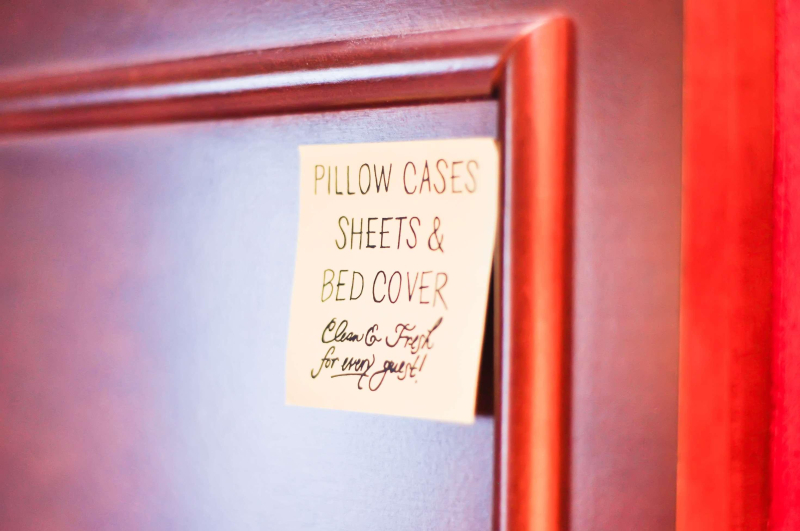 PILLOW CASES
SHEETS &
BED COVER
Clean & Fresh
for every guest!